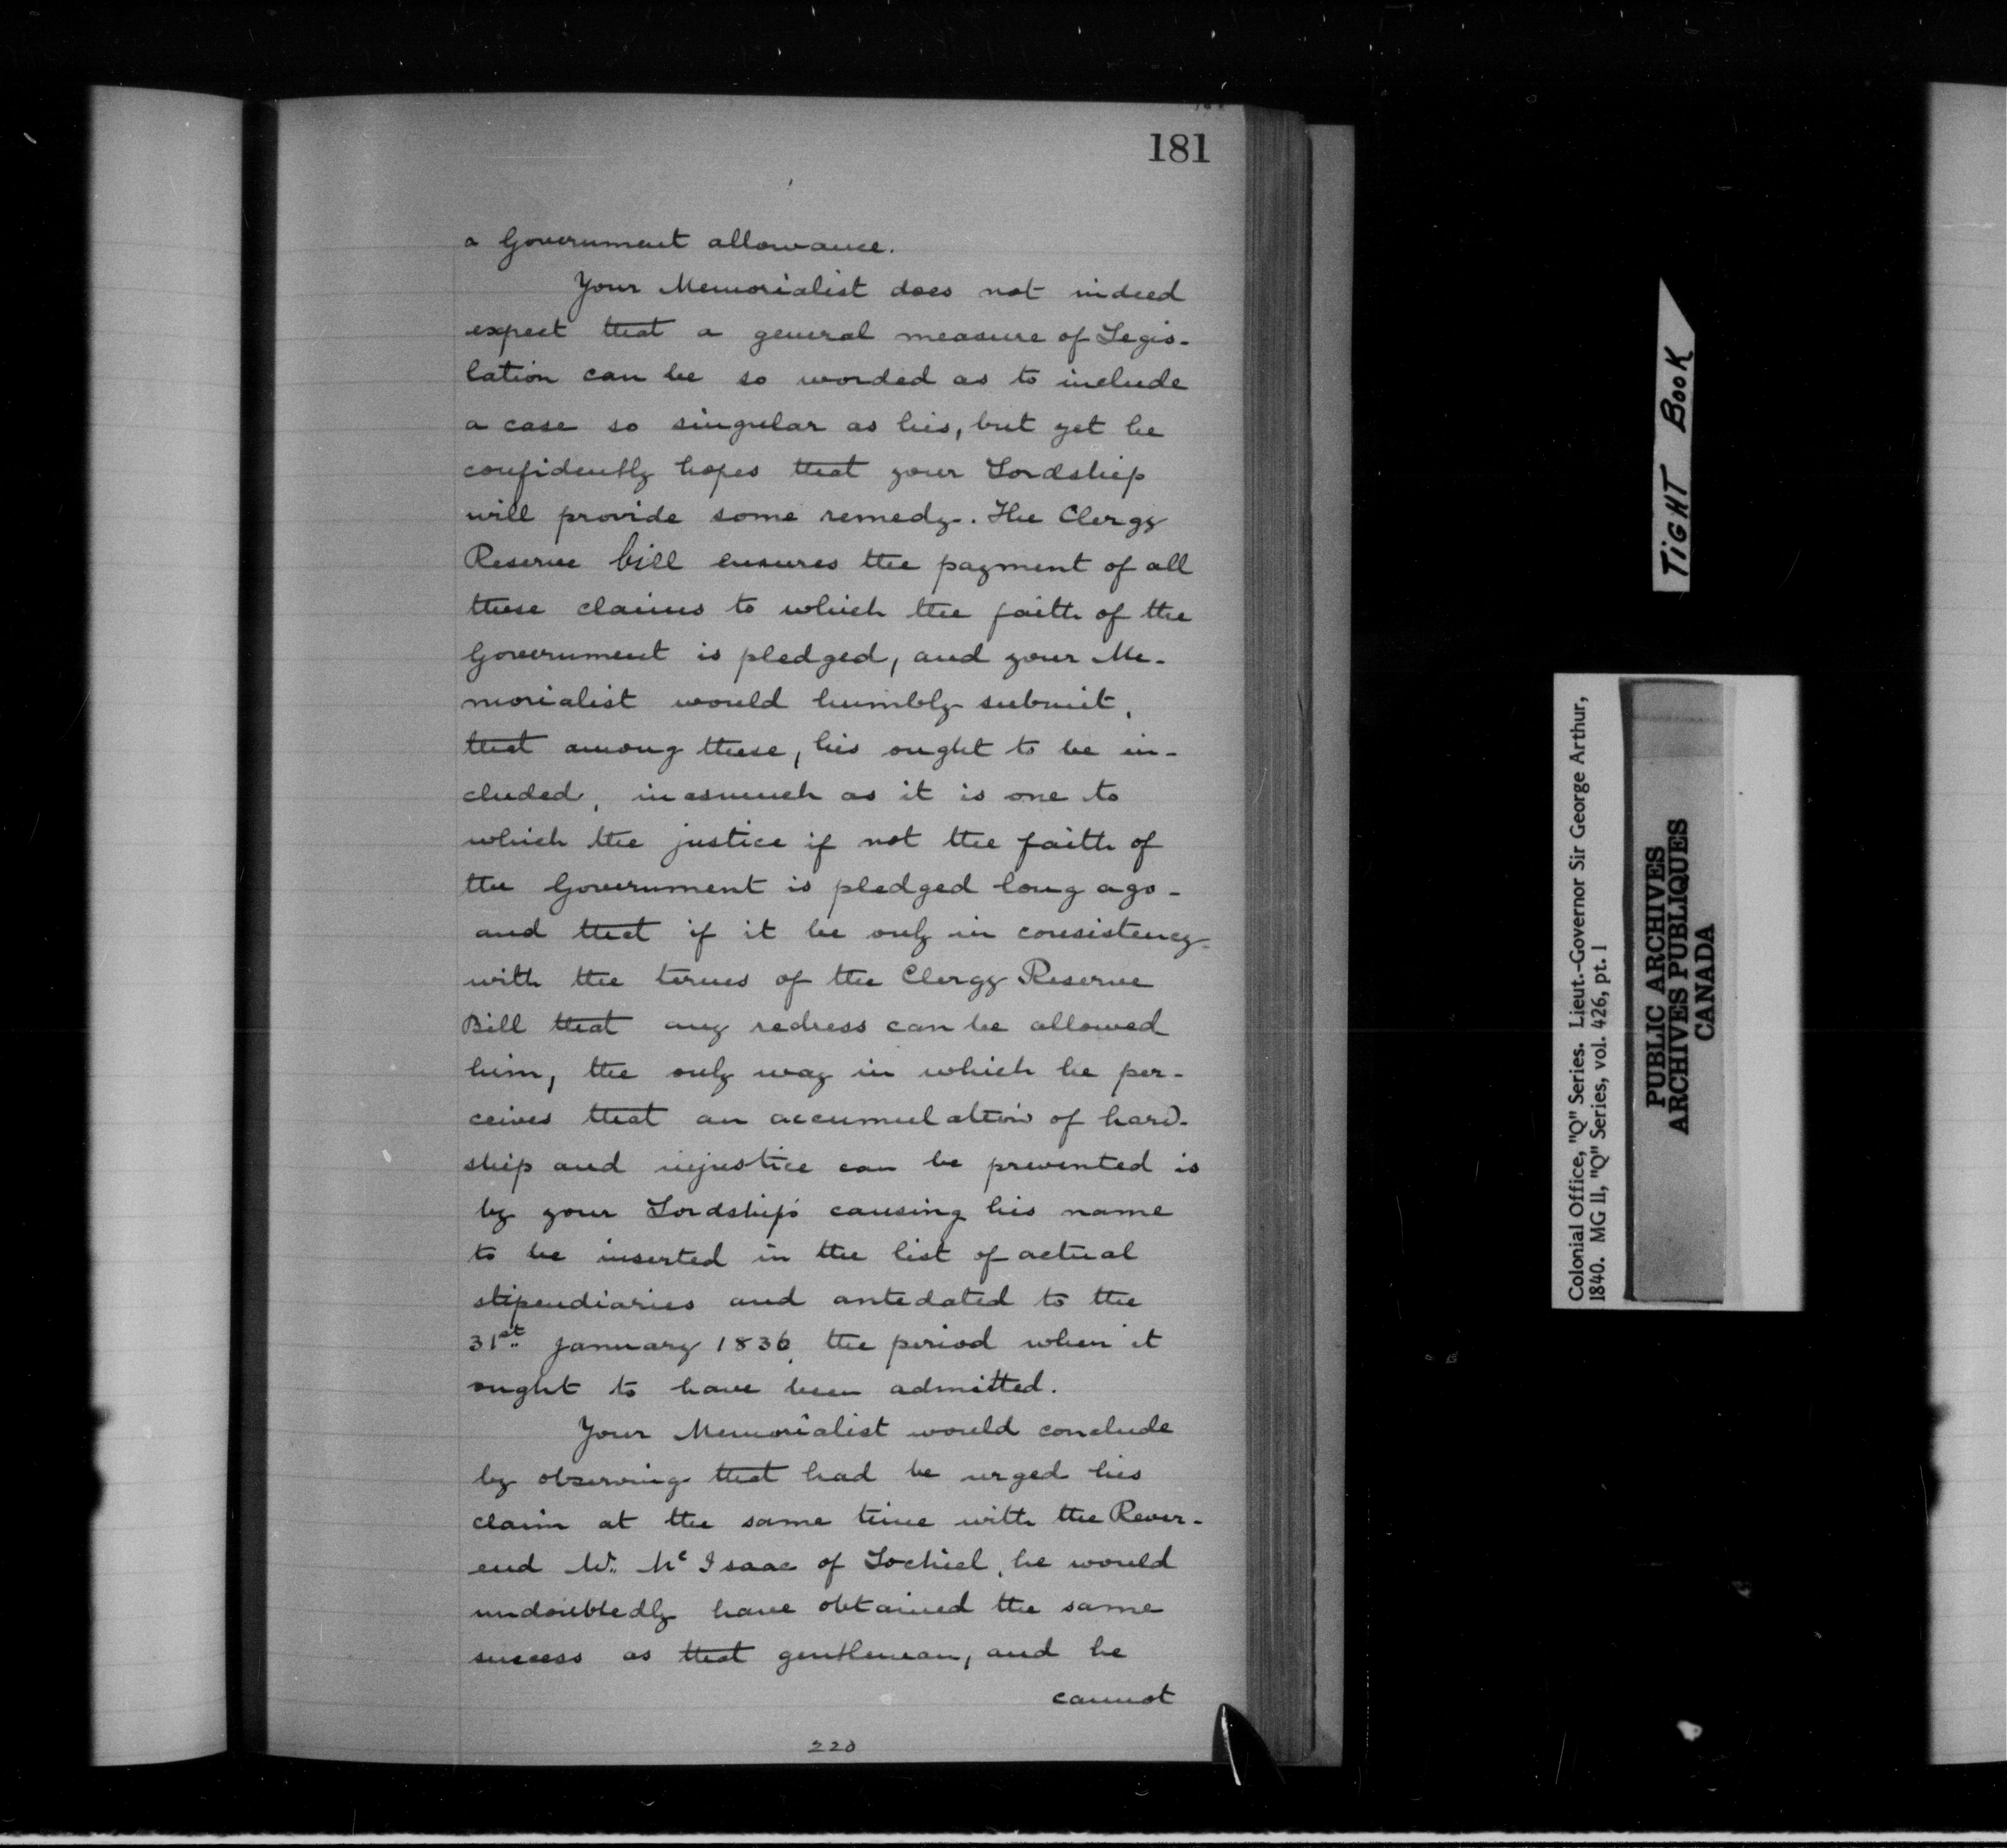 181
a Government allowance.
Your Memorialist does not indeed
expect that a general measure of Legis-
lation can be so worded as to include
a case so singular as his, but yet he
confidently hopes that your Lordship
will provide some remedy. The Clergy
Reserve bill ensures the payment of all
these claims to which the faith of the
Government is pledged, and your Me-
morialist would humbly submit,
that among these, his ought to be in-
cluded, inasmuch as it is one to
which the justice if not the faith of
the Government is pledged long ago -
and that if it be only in consistency
with the terms of the Clergy Reserve
Bill that any redress can be allowed
him, the only way in which he per-
ceives that an accumulation of hard-
ship and injustice can be prevented is
by your Lordship's causing his name
to be inserted in the list of actual
stipendiaries and antedated to the
31st January 1836, the period when it
ought to have been admitted.
Your Memorialist would conclude
by observing that had he urged his
claim at the same time with the Rever-
end Mr. McIsaac of Lochiel, he would
undoubtedly have obtained the same
success as that gentleman, and he
cannot
220
TIGHT BOOK
Colonial Office, "Q" Series. Lieut.-Governor Sir George Arthur,
1840. MG 11, "Q" Series, vol. 426, pt. 1
PUBLIC ARCHIVES
ARCHIVES PUBLIQUES
CANADA